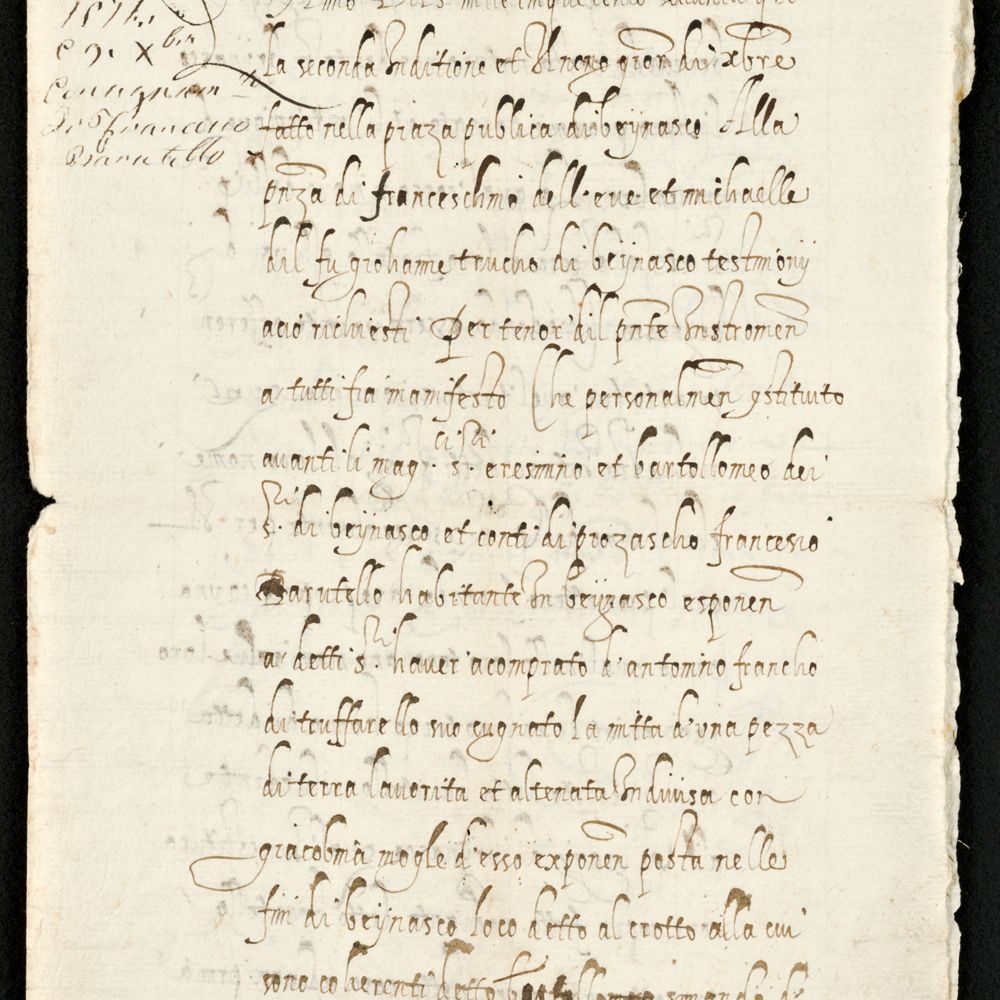 1574.
e 9. Xbri
Consignam.to
di francesco
Barutello
la seconda Inditione et Al nono gior.o di xbre
fatto nella piaza publica di beijnasco Alla
pnza di franceschino dell'eve et michaelle
dil fu giohanne trucho di beijnasco testimonij
acio richiesti Per tenor' dil pnte Instromen
a tutti fia manifesto Che personalmen 9stituito
avanti li mag.ci s.ri eresimno et bartollomeo dei
s.ri di beijnasco et conti di piozascho francesco
Barutello habitante In beijnasco esponen
a detti s.ri haver' acomprato d'antonino francho
di truffarello suo cugnato la mitta d'una pezza
di terra lavorita et altenata Indivisa con
giacobina mogle d'esso exponen posta nelle
fini di beijnasco loco detto al crotto alla cui
sono coherenti detto bartollomeo